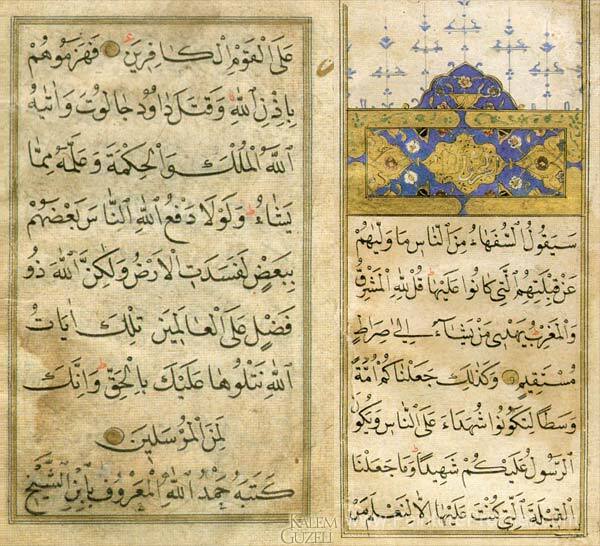 سَيَقُولُ السُّفَهَاءُ مِنَ النَّاسِ مَا وَلّٰيهُمْ
عَنْ قِبْلَتِهِمُ الَّتِي كَانُوا عَلَيْهَا قُلْ لِلّٰهِ الْمَشْرِقُ
وَالْمَغْرِبُ يَهْدِي مَنْ يَشَاءُ اِلٰى صِرَاطٍ
مُسْتَقِيمٍ وَكَذٰلِكَ جَعَلْنَاكُمْ اُمَّةً
وَسَطًا لِتَكُونُوا شُهَدَاءَ عَلَى النَّاسِ وَيَكُونَ
الرَّسُولُ عَلَيْكُمْ شَهِيدًا وَمَا جَعَلْنَا
الْقِبْلَةَ الَّتِي كُنْتَ عَلَيْهَا اِلَّا لِنَعْلَمَ مَنْ
عَلَى الْقَوْمِ الْكَافِرِينَ فَهَزَمُوهُمْ
بِاِذْنِ اللّٰهِ وَقَتَلَ دَاوُدُ جَالُوتَ وَاٰتٰيهُ
اللّٰهُ الْمُلْكَ وَالْحِكْمَةَ وَعَلَّمَهُ مِمَّا
يَشَاءُ وَلَوْلَا دَفْعُ اللّٰهِ النَّاسَ بَعْضَهُمْ
بِبَعْضٍ لَفَسَدَتِ الْاَرْضُ وَلٰكِنَّ اللّٰهَ ذُو
فَضْلٍ عَلَى الْعَالَمِينَ تِلْكَ اٰيَاتُ
اللّٰهِ نَتْلُوهَا عَلَيْكَ بِالْحَقِّ وَاِنَّكَ
لَمِنَ الْمُرْسَلِينَ
كَتَبَهُ حَمْدُ اللّٰهِ الْمَعْرُوفُ بِابْنِ الشَّيْخِ
KALEM
GUZELI